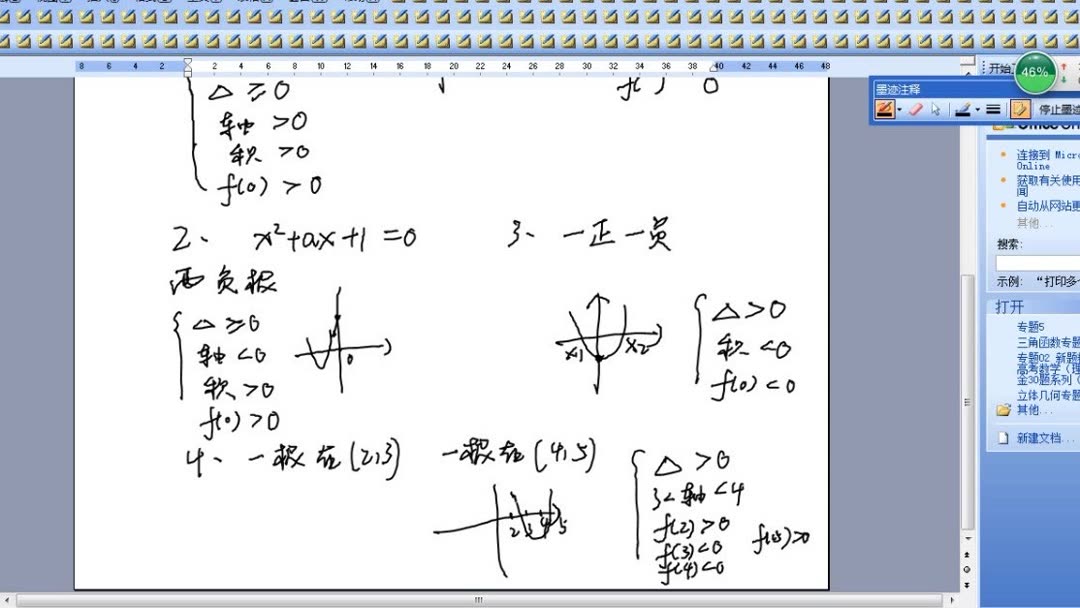 8 6 4 2 2 4 6 8 10 12 14 16 18 20 22 24 26 28 30 32 34 36 38 40 42 44 46 48
开始
46%
墨迹注释
停止墨迹
△ ≥ 0
f( ) 0
轴 > 0
积 > 0
f(0) > 0
连接到 Micro
Online
获取有关使用
闻
自动从网站更
其他...
搜索:
示例: “打印多个
2、 x²+ax+1=0
3、一正一负
两负根
△ ≥ 0
轴 < 0
积 > 0
f(0) > 0
0
x1 x2
△ > 0
积 < 0
f(0) < 0
打开
专题5
三角函数专题
专题02 新题
高考数学(理
金30题系列(
立体几何专题
其他...
新建文档...
4、一根在(2,3) 一根在(4,5)
2 3 4 5
△ > 0
3 < 轴 < 4
f(2) > 0
f(3) < 0
f(4) < 0
f(5) > 0